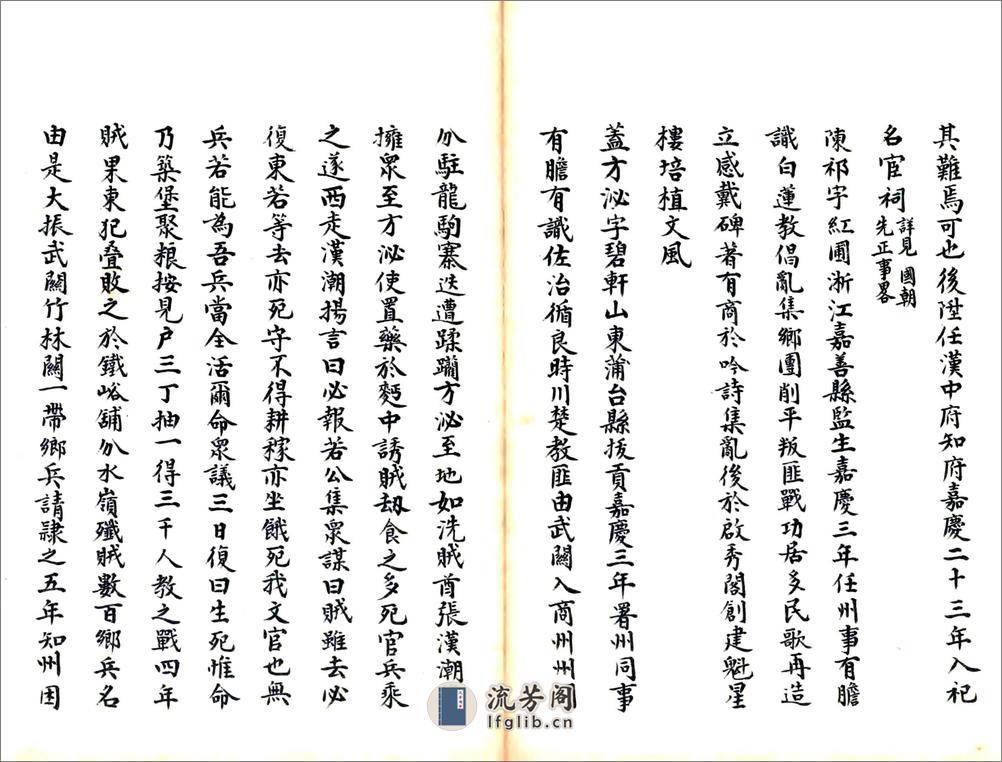 其難焉可也後陞任漢中府知府嘉慶二十三年入祀
名宦祠詳見國朝先正事畧
陳祁字紅圃浙江嘉善縣監生嘉慶三年任州事有膽
識白蓮教倡亂集鄉團削平叛匪戰功居多民歌再造
立感戴碑著有商於吟詩集亂後於啟秀閣創建魁星
樓培植文風
蓋方泌字碧軒山東蒲台縣拔貢嘉慶三年署州同事
有膽有識佐治循良時川楚教匪由武關入商州州同
分駐龍駒寨迭遭蹂躪方泌至地如洗賊酋張漢潮
擁眾至方泌使置藥於麪中誘賊刼食之多死官兵乘
之遂西走漢潮揚言曰必報若公集眾謀曰賊雖去必
復東若等去亦死守不得耕稼亦坐餓死我文官也無
兵若能為吾兵當全活爾命眾議三日復曰生死惟命
乃築堡聚粮按見户三丁抽一得三千人教之戰四年
賊果東犯叠敗之於鐵峪鋪分水嶺殲賊數百鄉兵名
由是大振武關竹林關一帶鄉兵請隸之五年知州困
流芳閣
lfglib.cn